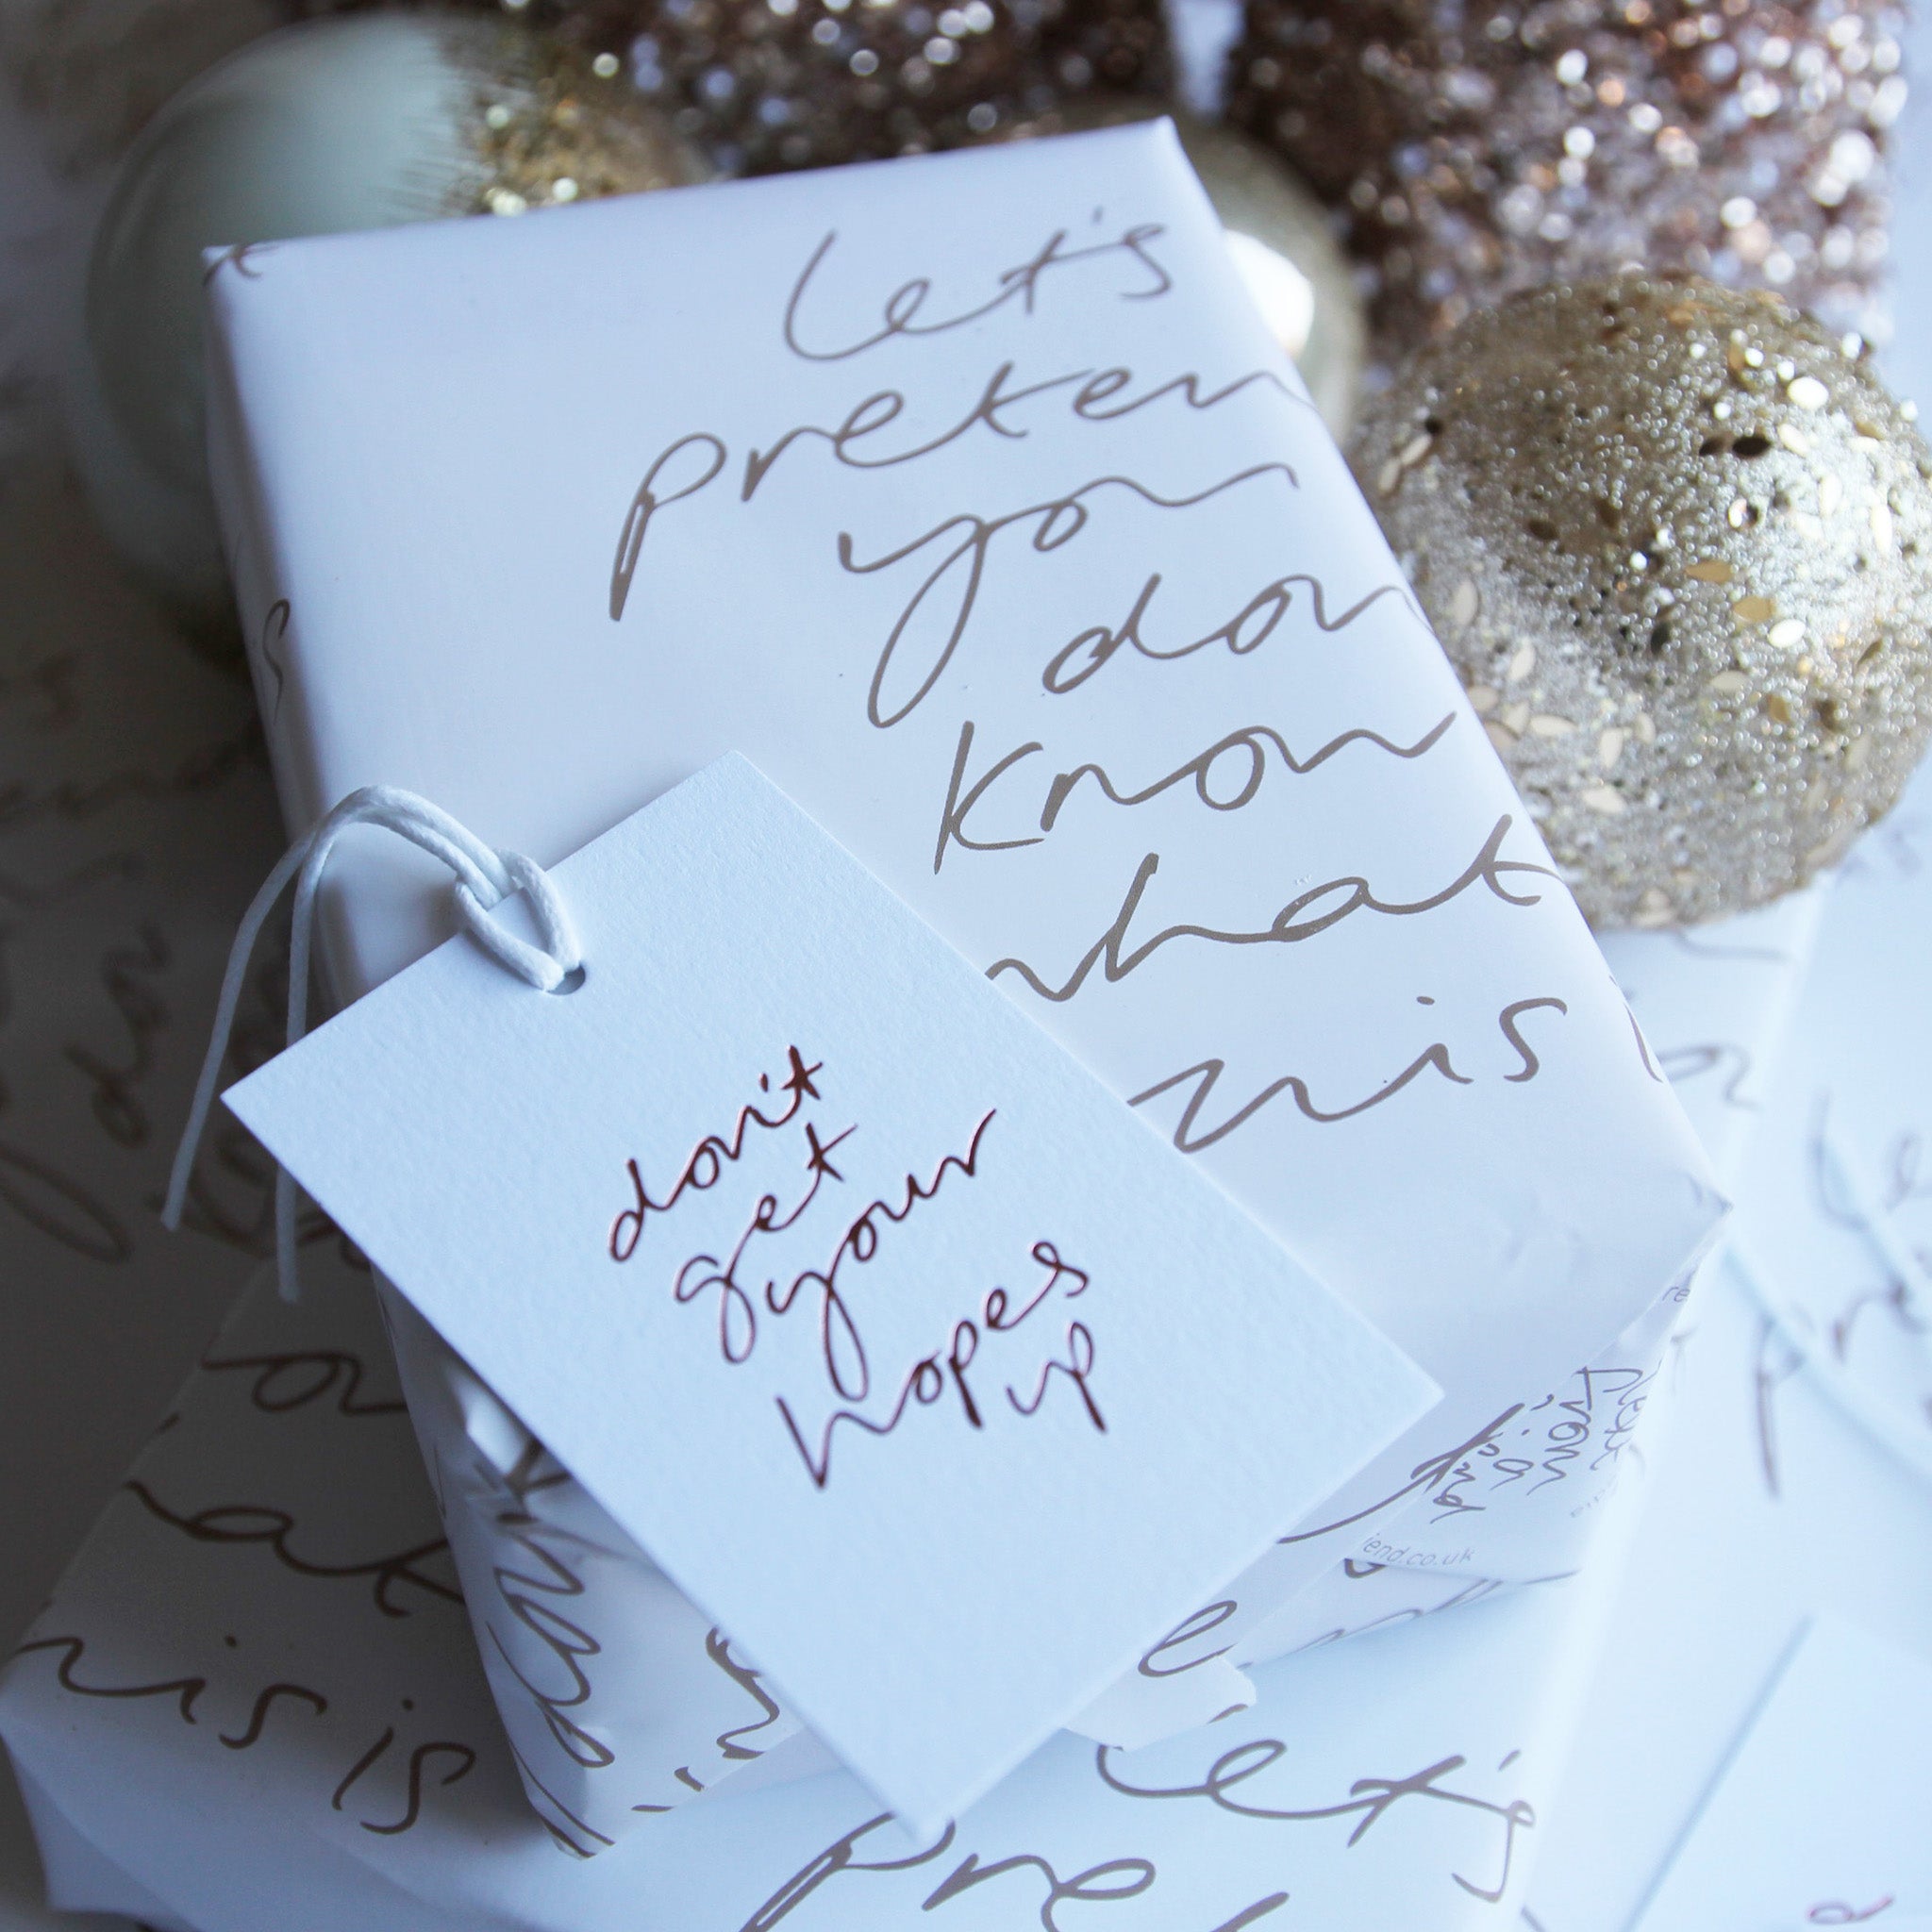 let's
preten
you
don
know
what
this
don't
get
your
hopes
up
at
his is
iend.co.uk
let's
pre